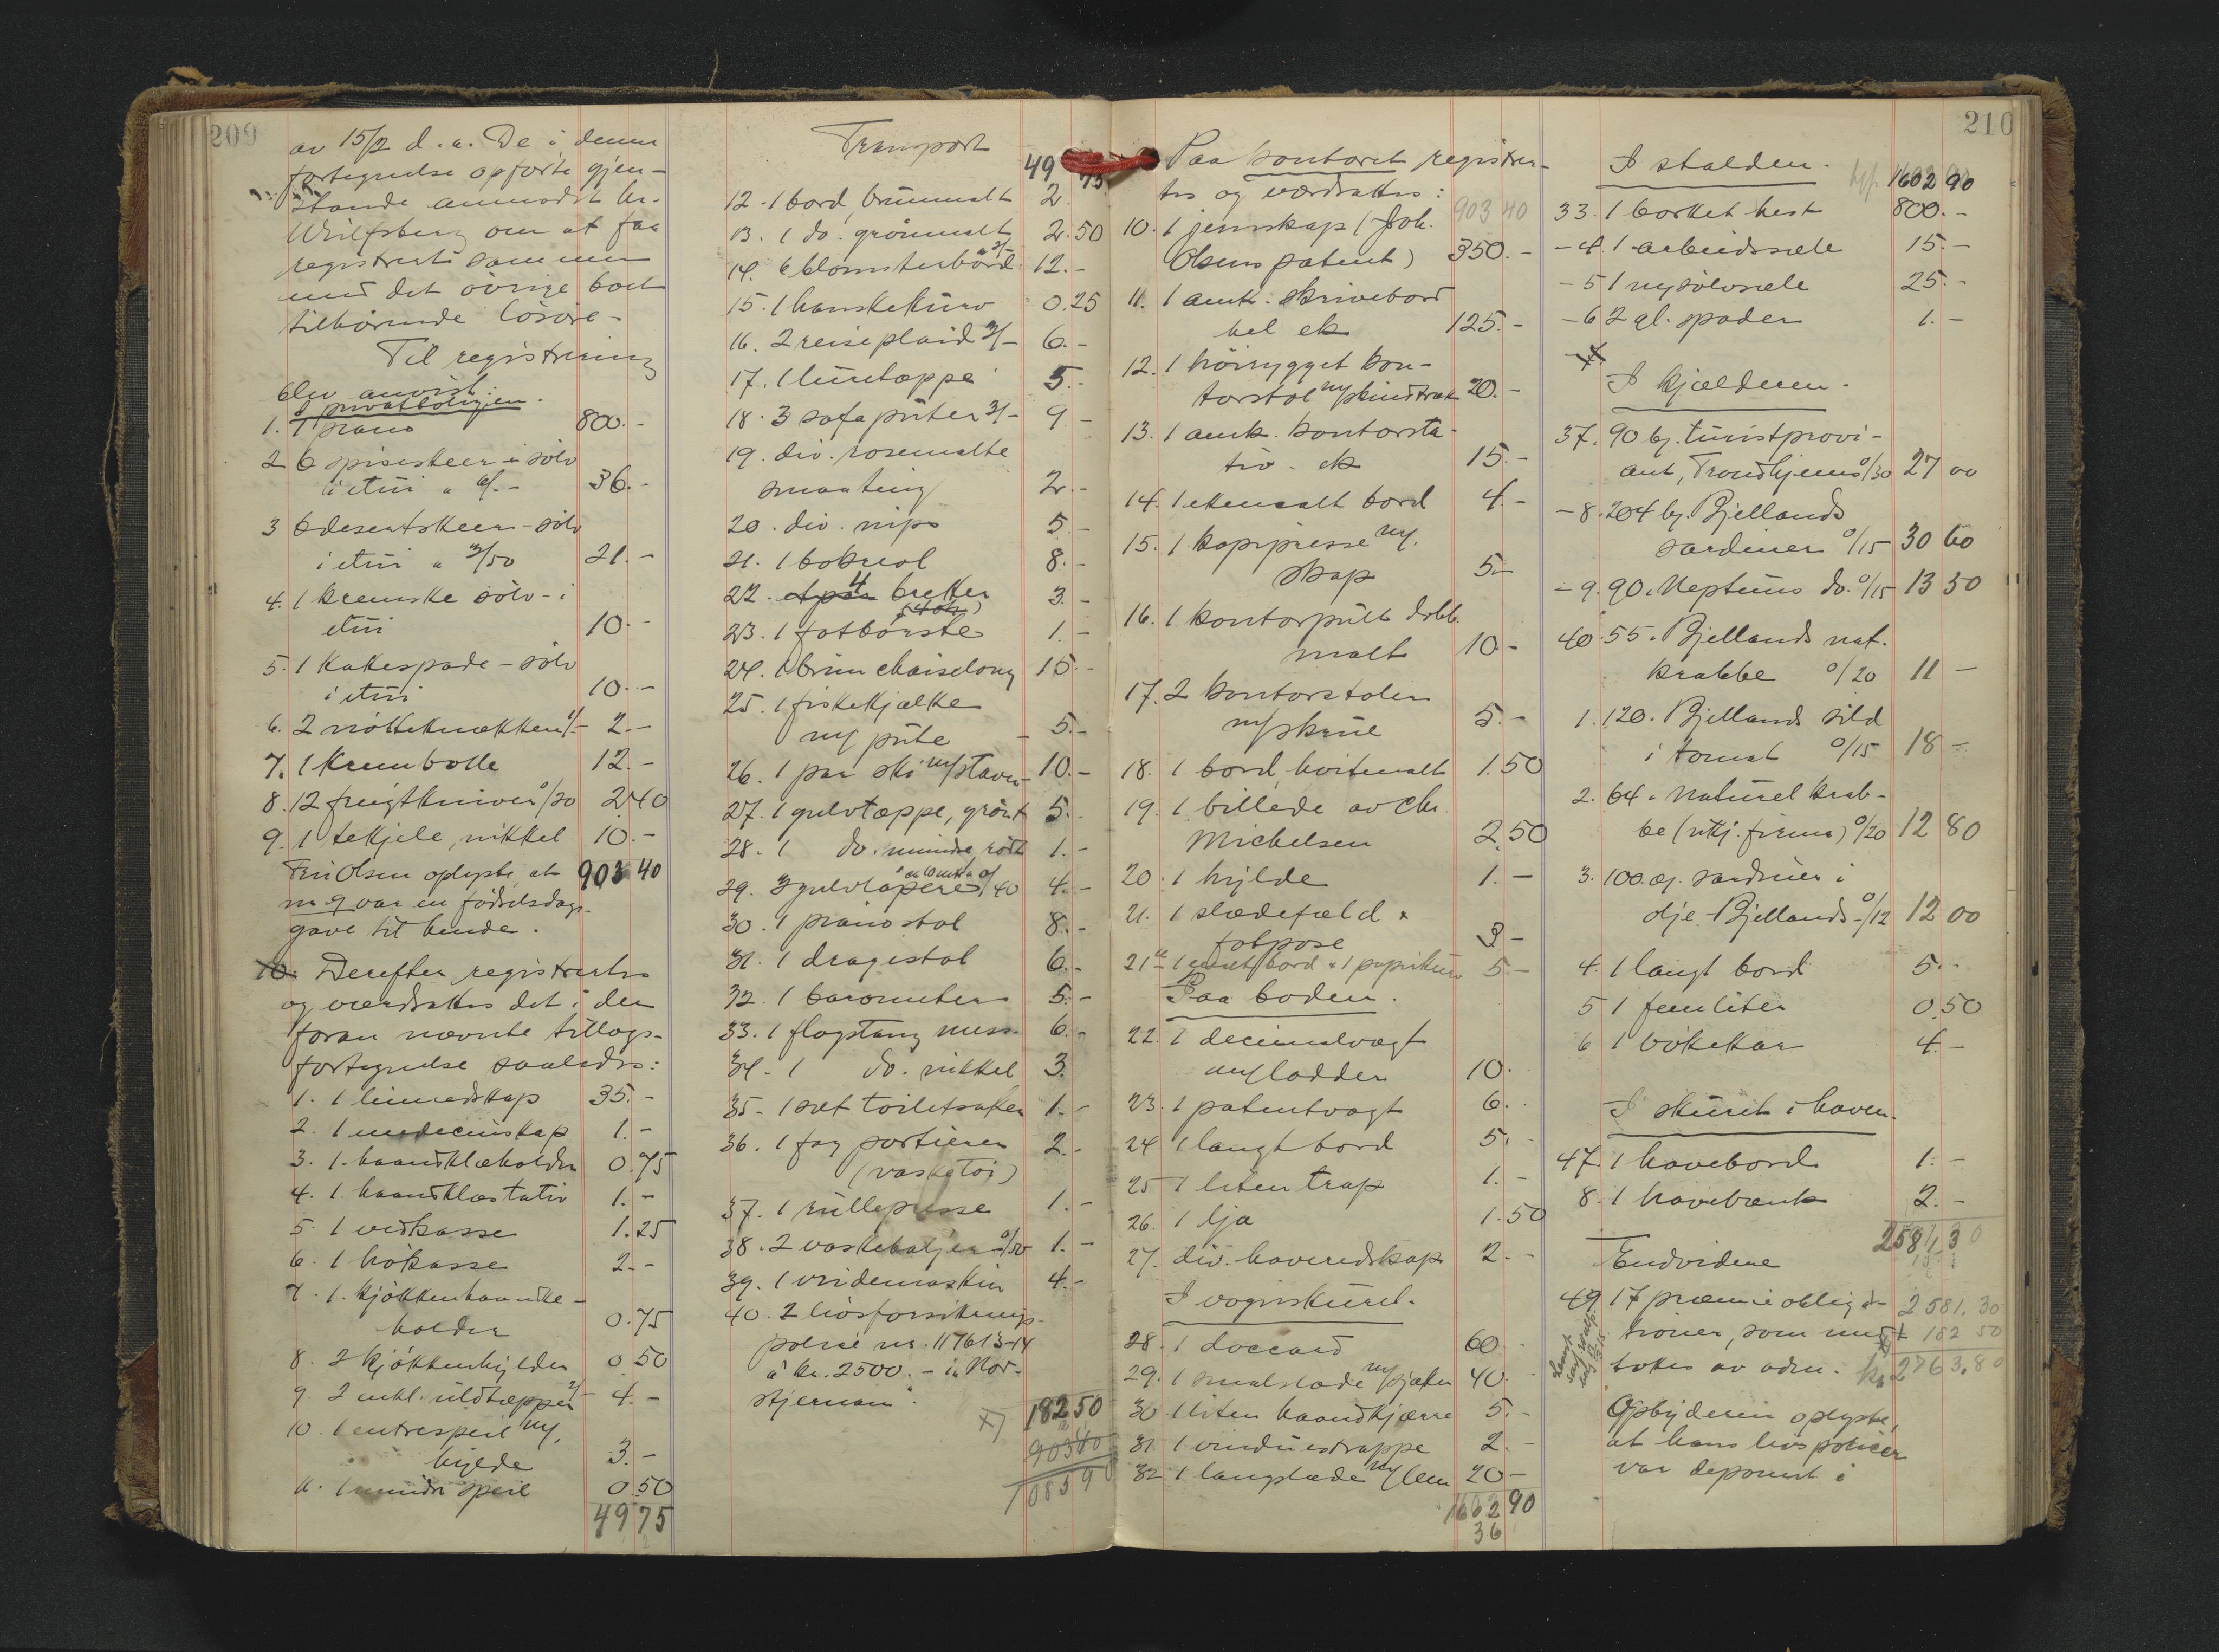 209
av 15/2 d. a. De i denne
fortegnelse opførte gjen-
stande anmodet hr.
Wulfsberg om at faa
registrert sammen
med det øvrige boet
tilhørende løsøre.
Til registrering
blev anvist:
I privatboligen.
1. 1 piano 800.-
2 6 spiseskeer i sølv
i etui a 6/- 36.-
3 6 desertskeer - sølv
i etui a 3/50 21.-
4. 1 kremske sølv - i
etui 10.-
5. 1 Kakespade - sølv
i etui 10.-
6. 2 nötteknækkere 1/- 2.-
7. 1 Krembolle 12.-
8. 12 frugtkniver 0/20 2.40
9. 1 tekjele, nikkel 10.-
Fru Olsen oplyste, at 903 40
nr 9 var en fødselsdags-
gave til hende.
10. Derefter registrertes
og værdsattes det i den
foran nævnte tillægs-
fortegnelse saaledes:
1. 1 linnedskap 35.-
2. 1 medecinskap 1.-
3. 1. haandklæholder 0.75
4. 1. haandklæstativ 1.-
5. 1 vedkasse 1.25
6. 1 hökasse 2.-
7. 1. kjökkenhaandkle-
holder 0.75
8. 2 kjökkenhylder 0.50
9. 2 enkl. uldtæpper 2/- 4.-
10. 1 entrespeil m/
hylde 3.-
11. 1 mindre speil 0.50
49 75
Transport 49 75
12. 1 bord, brunmalt 2.
13. 1 do. grönmalt 2.50
14. 6 blomsterbord a 2/- 12.-
15. 1 hanskekurv 0.25
16. 2 reiseplaid 3/- 6.-
17. 1 luretæppe 5.-
18. 3 sofaputer 3/- 9.-
19. div. rosemalte
smaating 2.-
20. div. nips 5.-
21. 1 bokreol 8.-
22. 4 bretter 3.-
23. 1 fotbörste 1.-
24. 1 brun chaiselong 15.-
25. 1 fiskekjælke
m/ pute 5.-
26. 1 par ski m/staver 10.-
27. 1 gulvtæppe, grönt 5.-
28. 1 do. mindre, rödt 1.-
29. gulvløpere /40 4.-
30. 1 pianostol 8.-
31. 1 dragestol 6.-
32. 1 barometer 5.-
33. 1 flagstang mess. 6.-
34. 1 do. nikkel 3.
35. 1 set toiletsaker 1.-
36. 1 fag portierer 2.-
(vasketøi)
37. 1 rullepresse 1.-
38. 2 vaskebaljer 0/50 1.-
39. 1 vridemaskin 4.-
40. 2 livsforsikrings-
polise nr. 117613-14
à kr. 2500.- i "Nor-
stjernen".
x) 182 50
903 40
1085 90
Paa kontoret registrer-
tes og værdsattes: 903 40
10. 1 jernskap (Joh.
Olsens patent) 350.-
11. 1 amk. skrivebord
hel ek 125.-
12. 1 höirygget kon-
torstol m/skindtræk 20.-
13. 1 amk. kontorsta-
tiv - ek 15.-
14. 1 ekemalt bord 4.-
15. 1 kopipresse m/
skap 5.-
16. 1 kontorpult dobb.
malt 10.-
17. 2 kontorstoler
m/skrue 5.-
18. 1 bord, hvitmalt 1.50
19. 1 billede av Chr.
Michelsen 2.50
20. 1 hylde 1.-
21. 1 slædefæld +
fotpose
21a 1 bord + 1 papirkurv 5.-
Paa boden.
22. 1 decimalvægt
m/lodder 10.
23. 1 patentvægt 6.
24 1 langt bord 5.
25 1 liten trap 1.-
26. 1 lja 1.50
27. div. haveredskap 2.-
I vognskuret.
28. 1 doccard 60
29. 1 smalslæde m/skjæker 40.
30 1 liten haandkjærre 5.-
31 1 vinduestrappe 2.-
32 1 langslæde m/lem 20.-
1602 90
36
210
I stalden. 1602 90
33. 1 borket hest 800.-
-4. 1 arbeidssæle 15.-
-5 1 ny sölvsæle 25.-
-6 2 gl. spader 1.-
I kjælderen.
37. 90 bx. turistprovi-
ant, Trondhjems 0/30 27 00
-8. 204 bx. Bjellands
sardiner 0/15 30 60
-9. 90. Neptuns do. 0/15 13 50
40. 55. Bjellands nat.
krabbe 0/20 11 -
1. 120. Bjellands sild
i tomat 0/15 18 -
2. 64. naturel krab-
be (ukj. firma) 0/20 12 80
3. 100 æs. sardiner i
olje - Bjellands - 0/12 12 00
4. 1 langt bord 5.-
5 1 femliter 0.50
6 1 bökekar 4.-
I skuret i haven.
47. 1 havebord 1.-
8. 1 havebænk 2.-
2581,30
Endvidere
49. 17 præmieobliga- 2581.30
tioner, som mot- x) 182 50
tokes av adm. kr. 2763.80
Opbyderen oplyste,
at hans livspoliser
var deponert i